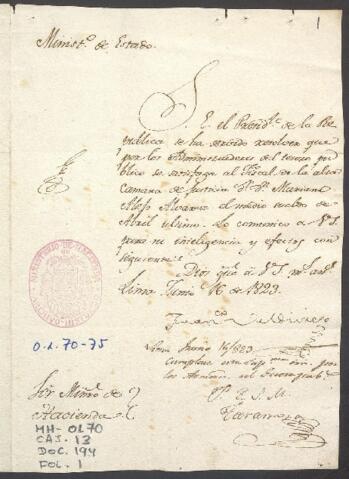 1
Minist.º de Estado.
S. E. el Presid.te de la Re
pública se ha servido resolver que
por los Administradores del tesoro pú
blico se satisfaga al Fiscal de la alta
Camara de Justicia D.r D. Mariano
Alejo Alvarez el medio sueldo de
Abril ultimo. Lo comunico a V.S.
para su inteligencia y efectos con
siguientes.
Dios gue. á V.S. m.s a.s
Lima Junio 16 de 1823.
Juan Valdivieso
Lima Junio 16/823
Cumplase
por
los
P. A. S. M.
MINISTERIO DE HACIENDA
O.L. 70-75
Sór Minro. de
Hacienda
MH-OL70
CAJ. 13
DOC. 194
FOL. 1